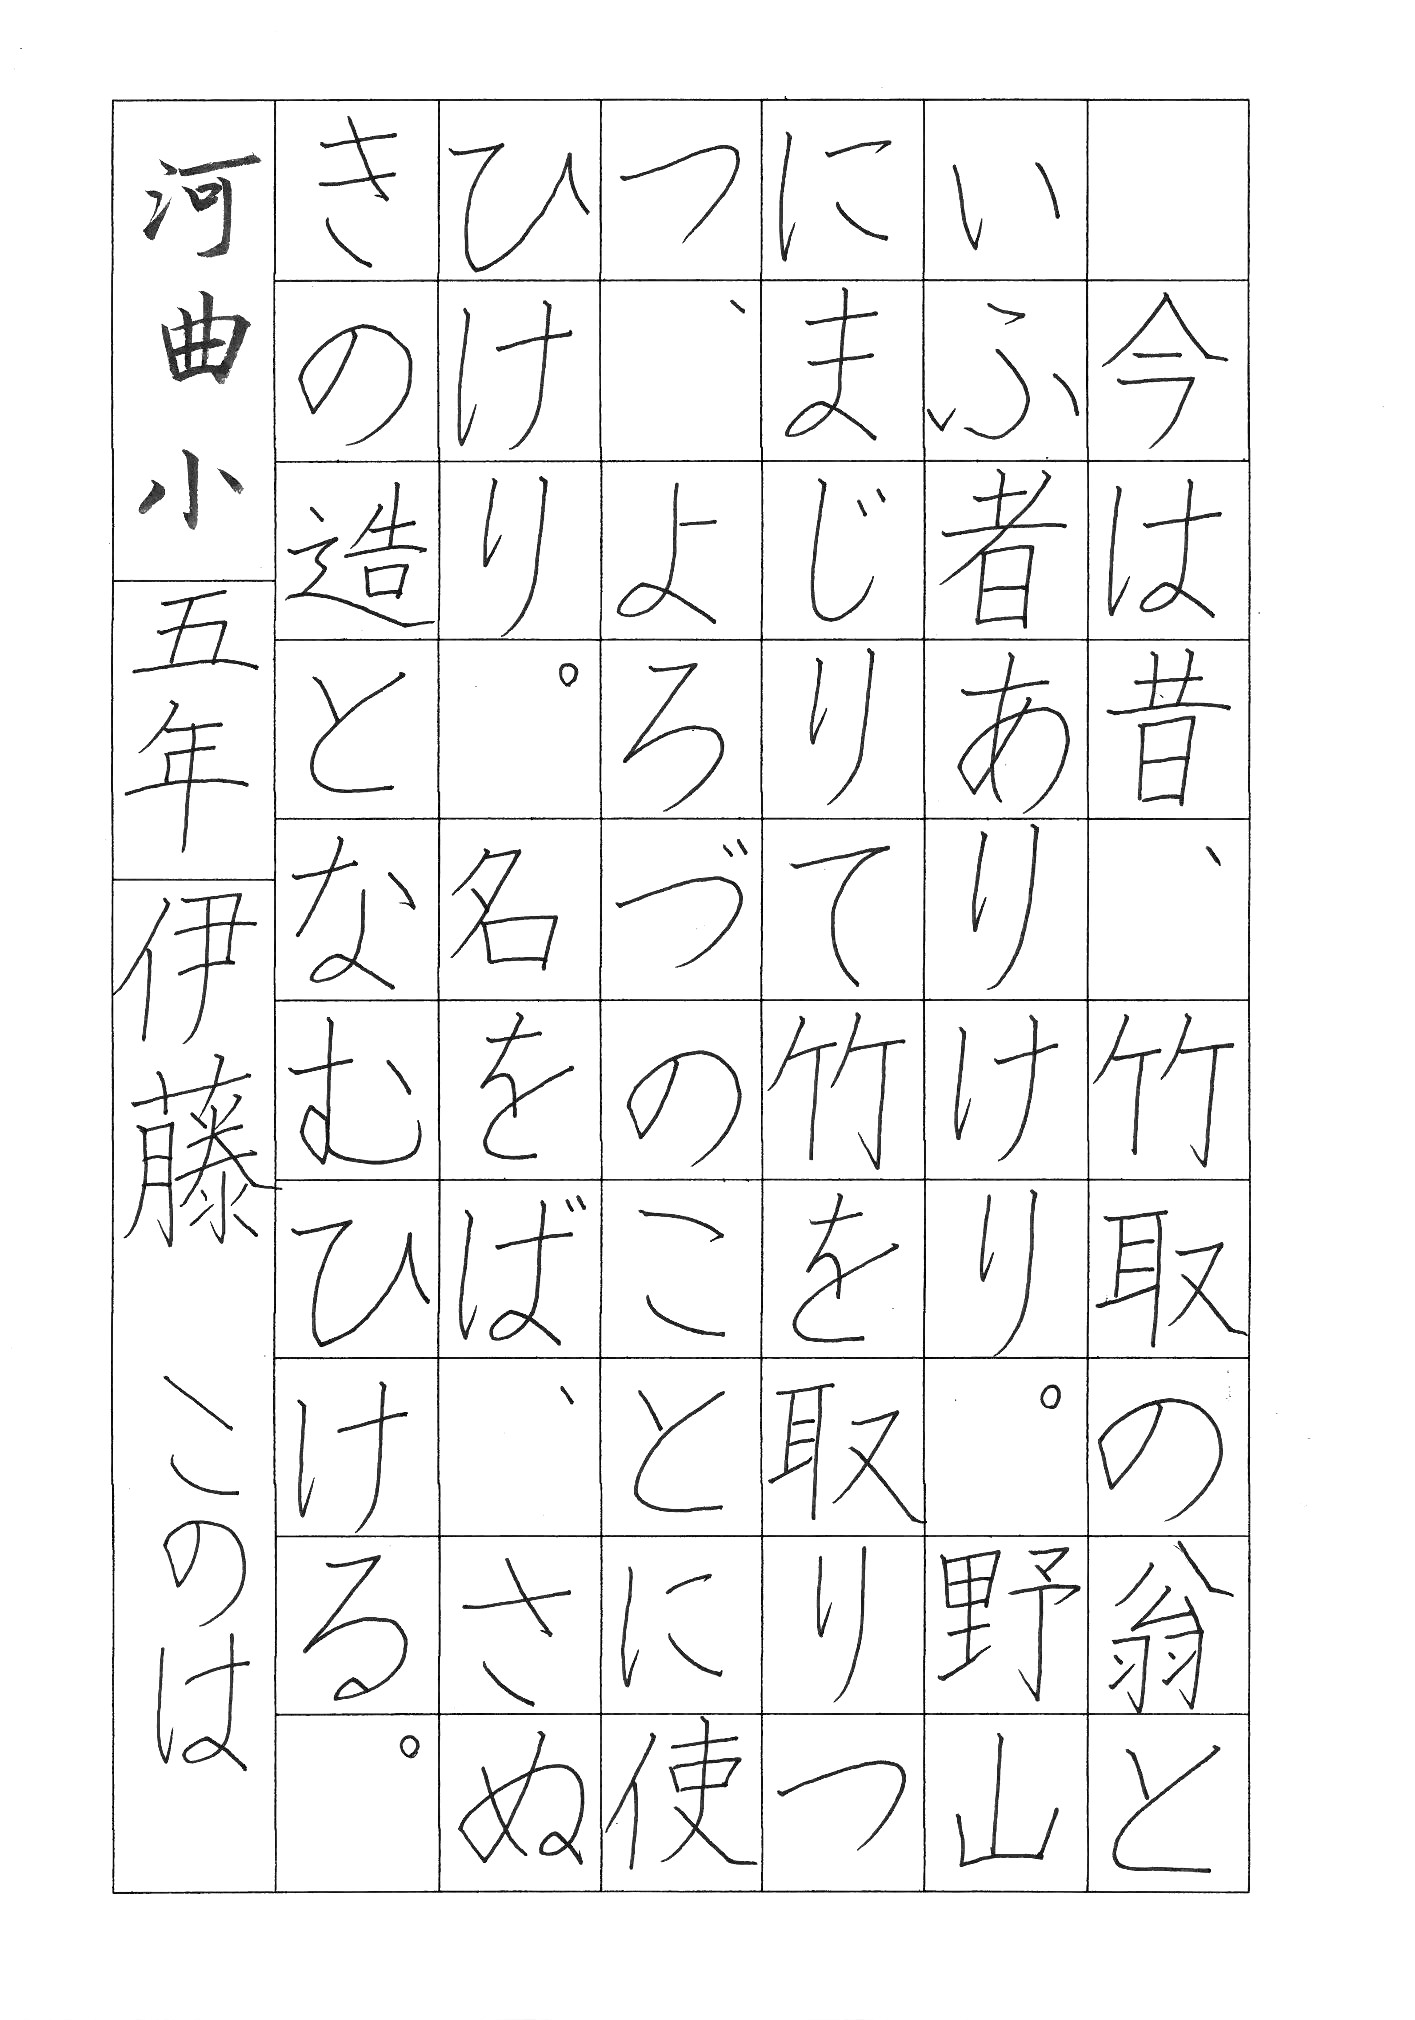 今は昔、竹取の翁と
いふ者ありけり。野山
にまじりて竹を取りつ
つ、よろづのことに使
ひけり。名をば、さぬ
きの造となむひける。
河曲小五年伊藤 このは